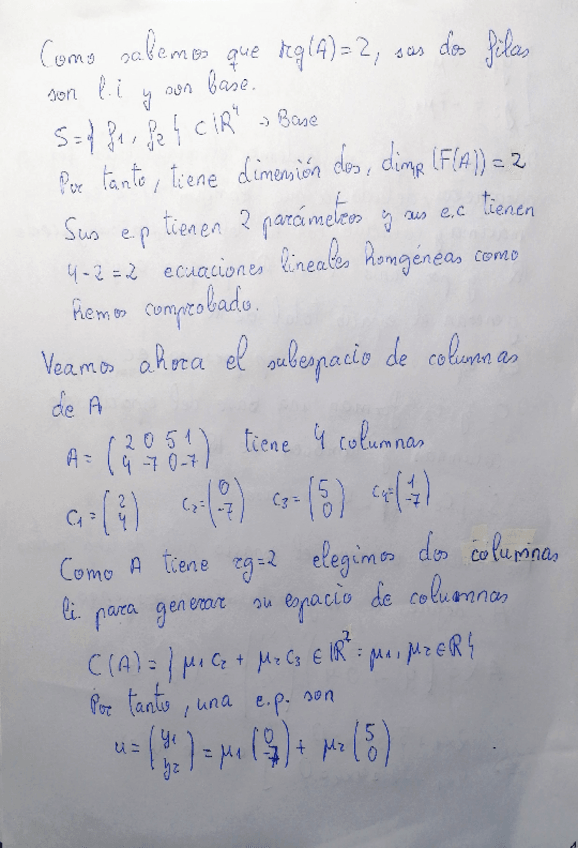 Como sabemos que rg(A)=2, sus dos filas
son l.i y son base.
S={ f₁, f₂ } ⊂ ℝ⁴ → Base
Por tanto, tiene dimensión dos, dim_ℝ (F(A)) = 2
Sus e.p tienen 2 parámetros y sus e.c tienen
4-2=2 ecuaciones lineales homgéneas como
hemos comprobado.
Veamos ahora el subespacio de columnas
de A
A = (2 0 5 1 / 4 -7 0 -7) tiene 4 columnas
C₁ = (2 / 4) C₂ = (0 / -7) C₃ = (5 / 0) C₄ = (1 / -7)
Como A tiene rg=2 elegimos dos columnas
li. para generar su espacio de columnas
C(A) = { μ₁ C₂ + μ₂ C₃ ∈ ℝ² : μ₁, μ₂ ∈ ℝ }
Por tanto, una e.p. son
u = (y₁ / y₂) = μ₁ (0 / -7) + μ₂ (5 / 0)